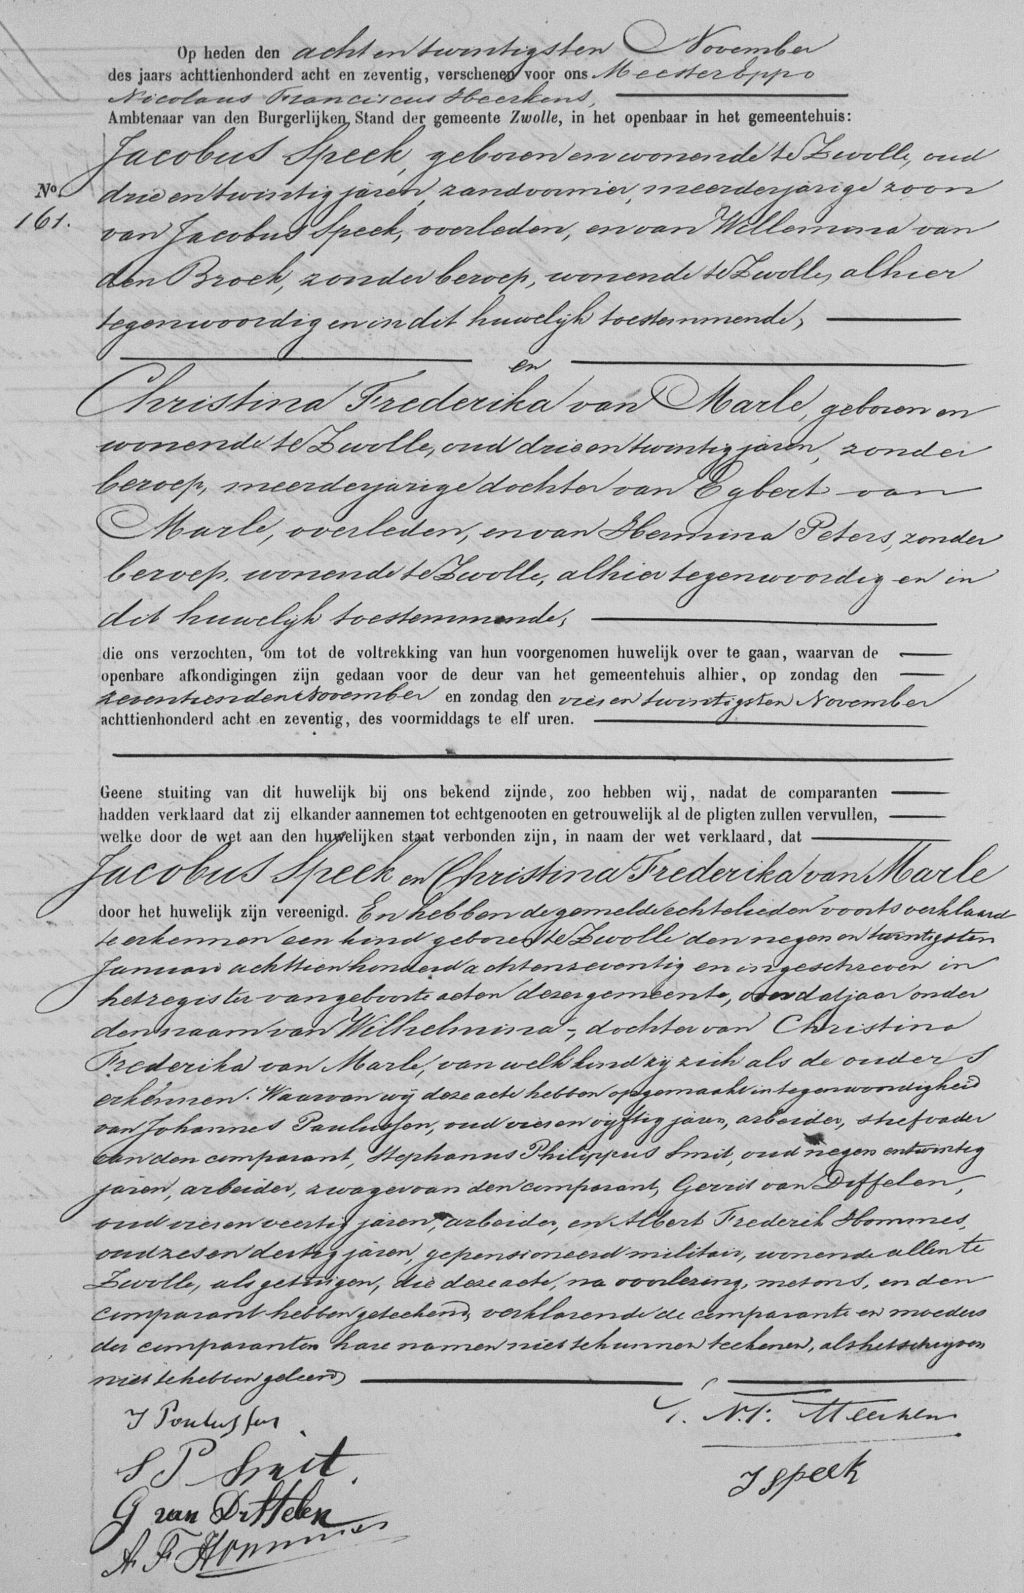 Op heden den acht en twintigsten November
des jaars achttienhonderd acht en zeventig, verschenen voor ons Meester Eppo
Nicolaus Franciscus Heerkens,
Ambtenaar van den Burgerlijken Stand der gemeente Zwolle, in het openbaar in het gemeentehuis:
Jacobus Speek, geboren en wonende te Zwolle, oud
No drie en twintig jaren, zandvormer, meerderjarige zoon
161. van Jacobus Speek, overleden, en van Willemina van
den Broek, zonder beroep, wonende te Zwolle, alhier
tegenwoordig en in dit huwelijk toestemmende,
en
Christina Frederika van Marle, geboren en
wonende te Zwolle, oud drie en twintig jaren, zonder
beroep, meerderjarige dochter van Egbert van
Marle, overleden, en van Hermina Peters, zonder
beroep, wonende te Zwolle, alhier tegenwoordig en in
dit huwelijk toestemmende,
die ons verzochten, om tot de voltrekking van hun voorgenomen huwelijk over te gaan, waarvan de
openbare afkondigingen zijn gedaan voor de deur van het gemeentehuis alhier, op zondag den
zeventienden November en zondag den vier en twintigsten November
achttienhonderd acht en zeventig, des voormiddags te elf uren.
Geene stuiting van dit huwelijk bij ons bekend zijnde, zoo hebben wij, nadat de comparanten
hadden verklaard dat zij elkander aannemen tot echtgenooten en getrouwelijk al de pligten zullen vervullen,
welke door de wet aan den huwelijken staat verbonden zijn, in naam der wet verklaard, dat
Jacobus Speek en Christina Frederika van Marle
door het huwelijk zijn vereenigd. En hebben de gemelde echtelieden voorts verklaard
te erkennen een kind geboren te Zwolle den negen en twintigsten
Januari achttienhonderd achtenzeventig en ingeschreven in
het register van geboorte acten dezer gemeente, over dat jaar onder
den naam van Wilhelmina, dochter van Christina
Frederika van Marle, van welk kind zij zich als de ouders
erkennen. Waarvan wij deze acte hebben opgemaakt in tegenwoordigheid
van Johannes Paulussen, oud vier en vijftig jaren, arbeider, stiefvader
van den comparant, Stephanus Philippus Smit, oud negen en twintig
jaren, arbeider, zwager van den comparant, Gerrit van Diffelen,
oud vier en veertig jaren, arbeider, en Albert Frederik Hommes,
oud zes en dertig jaren, gepensioneerd militair, wonende allen te
Zwolle, als getuigen, die deze acte, na voorlezing, met ons, en den
comparant hebben geteekend, verklarende de comparante en moeders
der comparanten hare namen niet te kunnen teekenen, als het schrijven
niet te hebben geleerd
J Paulussen
N. F. Heerkens
S P Smit
J Speek
G van Diffelen
A. F. Hommes